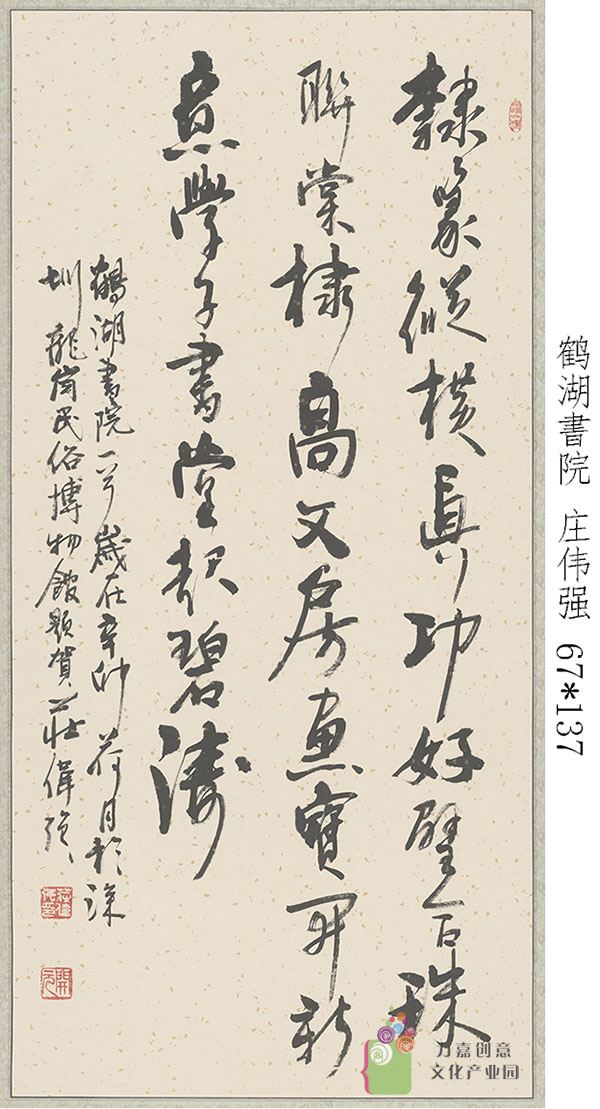 隸篆縱橫真功好璧合珠
聯棠棣高文房惠寶開新
意學子書堂起碧濤
鶴湖書院一歲在辛卯荷月於深
圳龍崗民俗博物館題賀莊偉強
鹤湖書院 庄伟强 67*137
万嘉创意
文化产业园